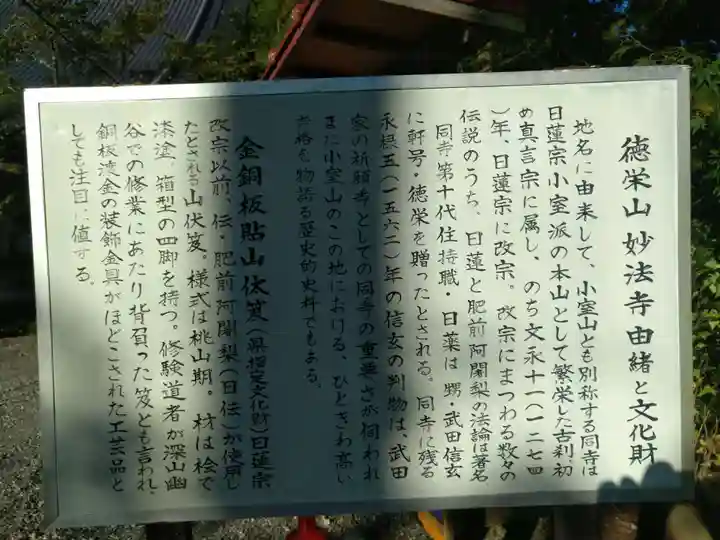 徳栄山妙法寺由緒と文化財
地名に由来して、小室山とも別称する同寺は
日蓮宗小室派の本山として繁栄した古刹。初
め真言宗に属し、のち文永十一(一二七四
)年、日蓮宗に改宗。改宗にまつわる数々の
伝説のうち、日蓮と肥前阿闍梨の法論は著名
同寺第十代住持職・日薬は、甥・武田信玄
に軒号・徳栄を贈ったとされる。同寺に残る
永禄五(一五六二)年の信玄の判物は、武田
家の祈願寺としての同寺の重要さが伺われ
また小室山のこの地における、ひときわ高い
格も物語る歴史的史料でもある。
金銅板貼山伏笈(県指定文化財)日蓮宗
改宗以前、伝・肥前阿闍梨(日伝)が使用し
たとされる山伏笈。様式は桃山期。材は桧で
漆塗。箱型の四脚を持つ。修験道者が深山幽
谷での修業にあたり背負った笈とも言われ、
銅板渡金の装飾金具がほどこされた工芸品と
しても注目に値する。